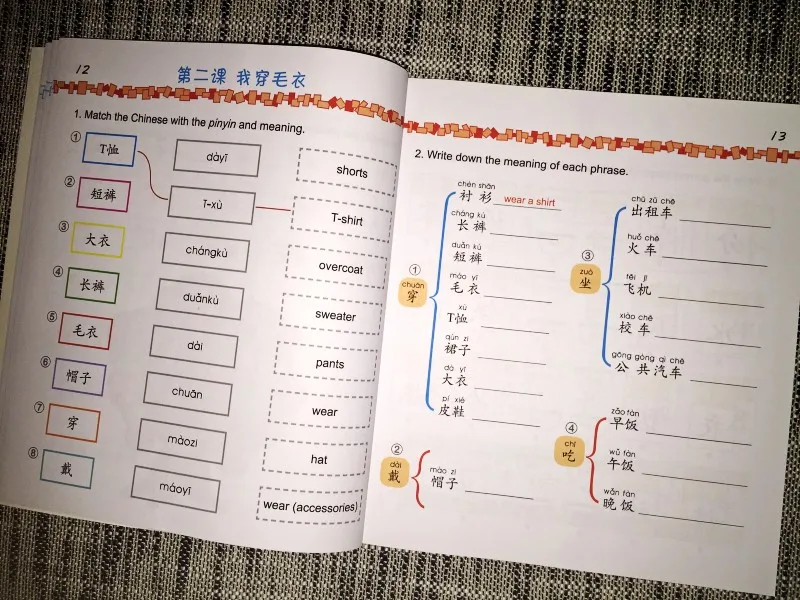 12
第二课 我穿毛衣
1. Match the Chinese with the pinyin and meaning.
① T恤
dàyī
shorts
② 短裤
T-xù
T-shirt
③ 大衣
chángkù
overcoat
④ 长裤
duǎnkù
sweater
⑤ 毛衣
dài
pants
⑥ 帽子
chuān
wear
⑦ 穿
màozi
hat
⑧ 戴
máoyī
wear (accessories)
13
2. Write down the meaning of each phrase.
①
chuān
穿
chèn shān
衬 衫 wear a shirt
cháng kù
长 裤
duǎn kù
短 裤
máo yī
毛 衣
xù
T恤
qún zi
裙子
dà yī
大衣
pí xié
皮鞋
②
dài
戴
mào zi
帽子
③
zuò
坐
chū zū chē
出租车
huǒ chē
火 车
fēi jī
飞机
xiào chē
校 车
gōng gòng qì chē
公 共 汽 车
④
chī
吃
zǎo fàn
早饭
wǔ fàn
午饭
wǎn fàn
晚饭